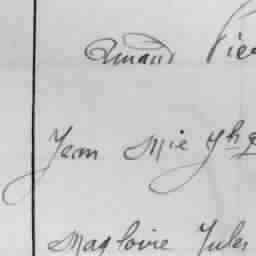 Amand Pie
Jean Mie Yh
Magloire Jules